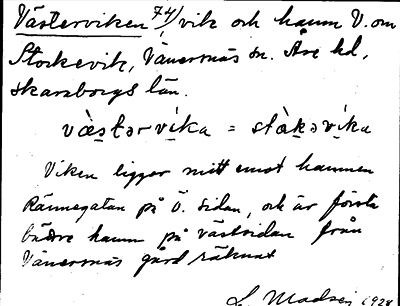 Västerviken 74/, vik och hamn V. om
Stockevik, Vänersnäs sn. Åse hd,
Skaraborgs län.
væ̀stərvíka = stɑ̀kəvíka
Viken ligger mitt emot hamnen
Rännegatan på Ö. sidan, och är första
bättre hamn på västsidan från
Vänersnäs gård räknat
L. Madsén 1928